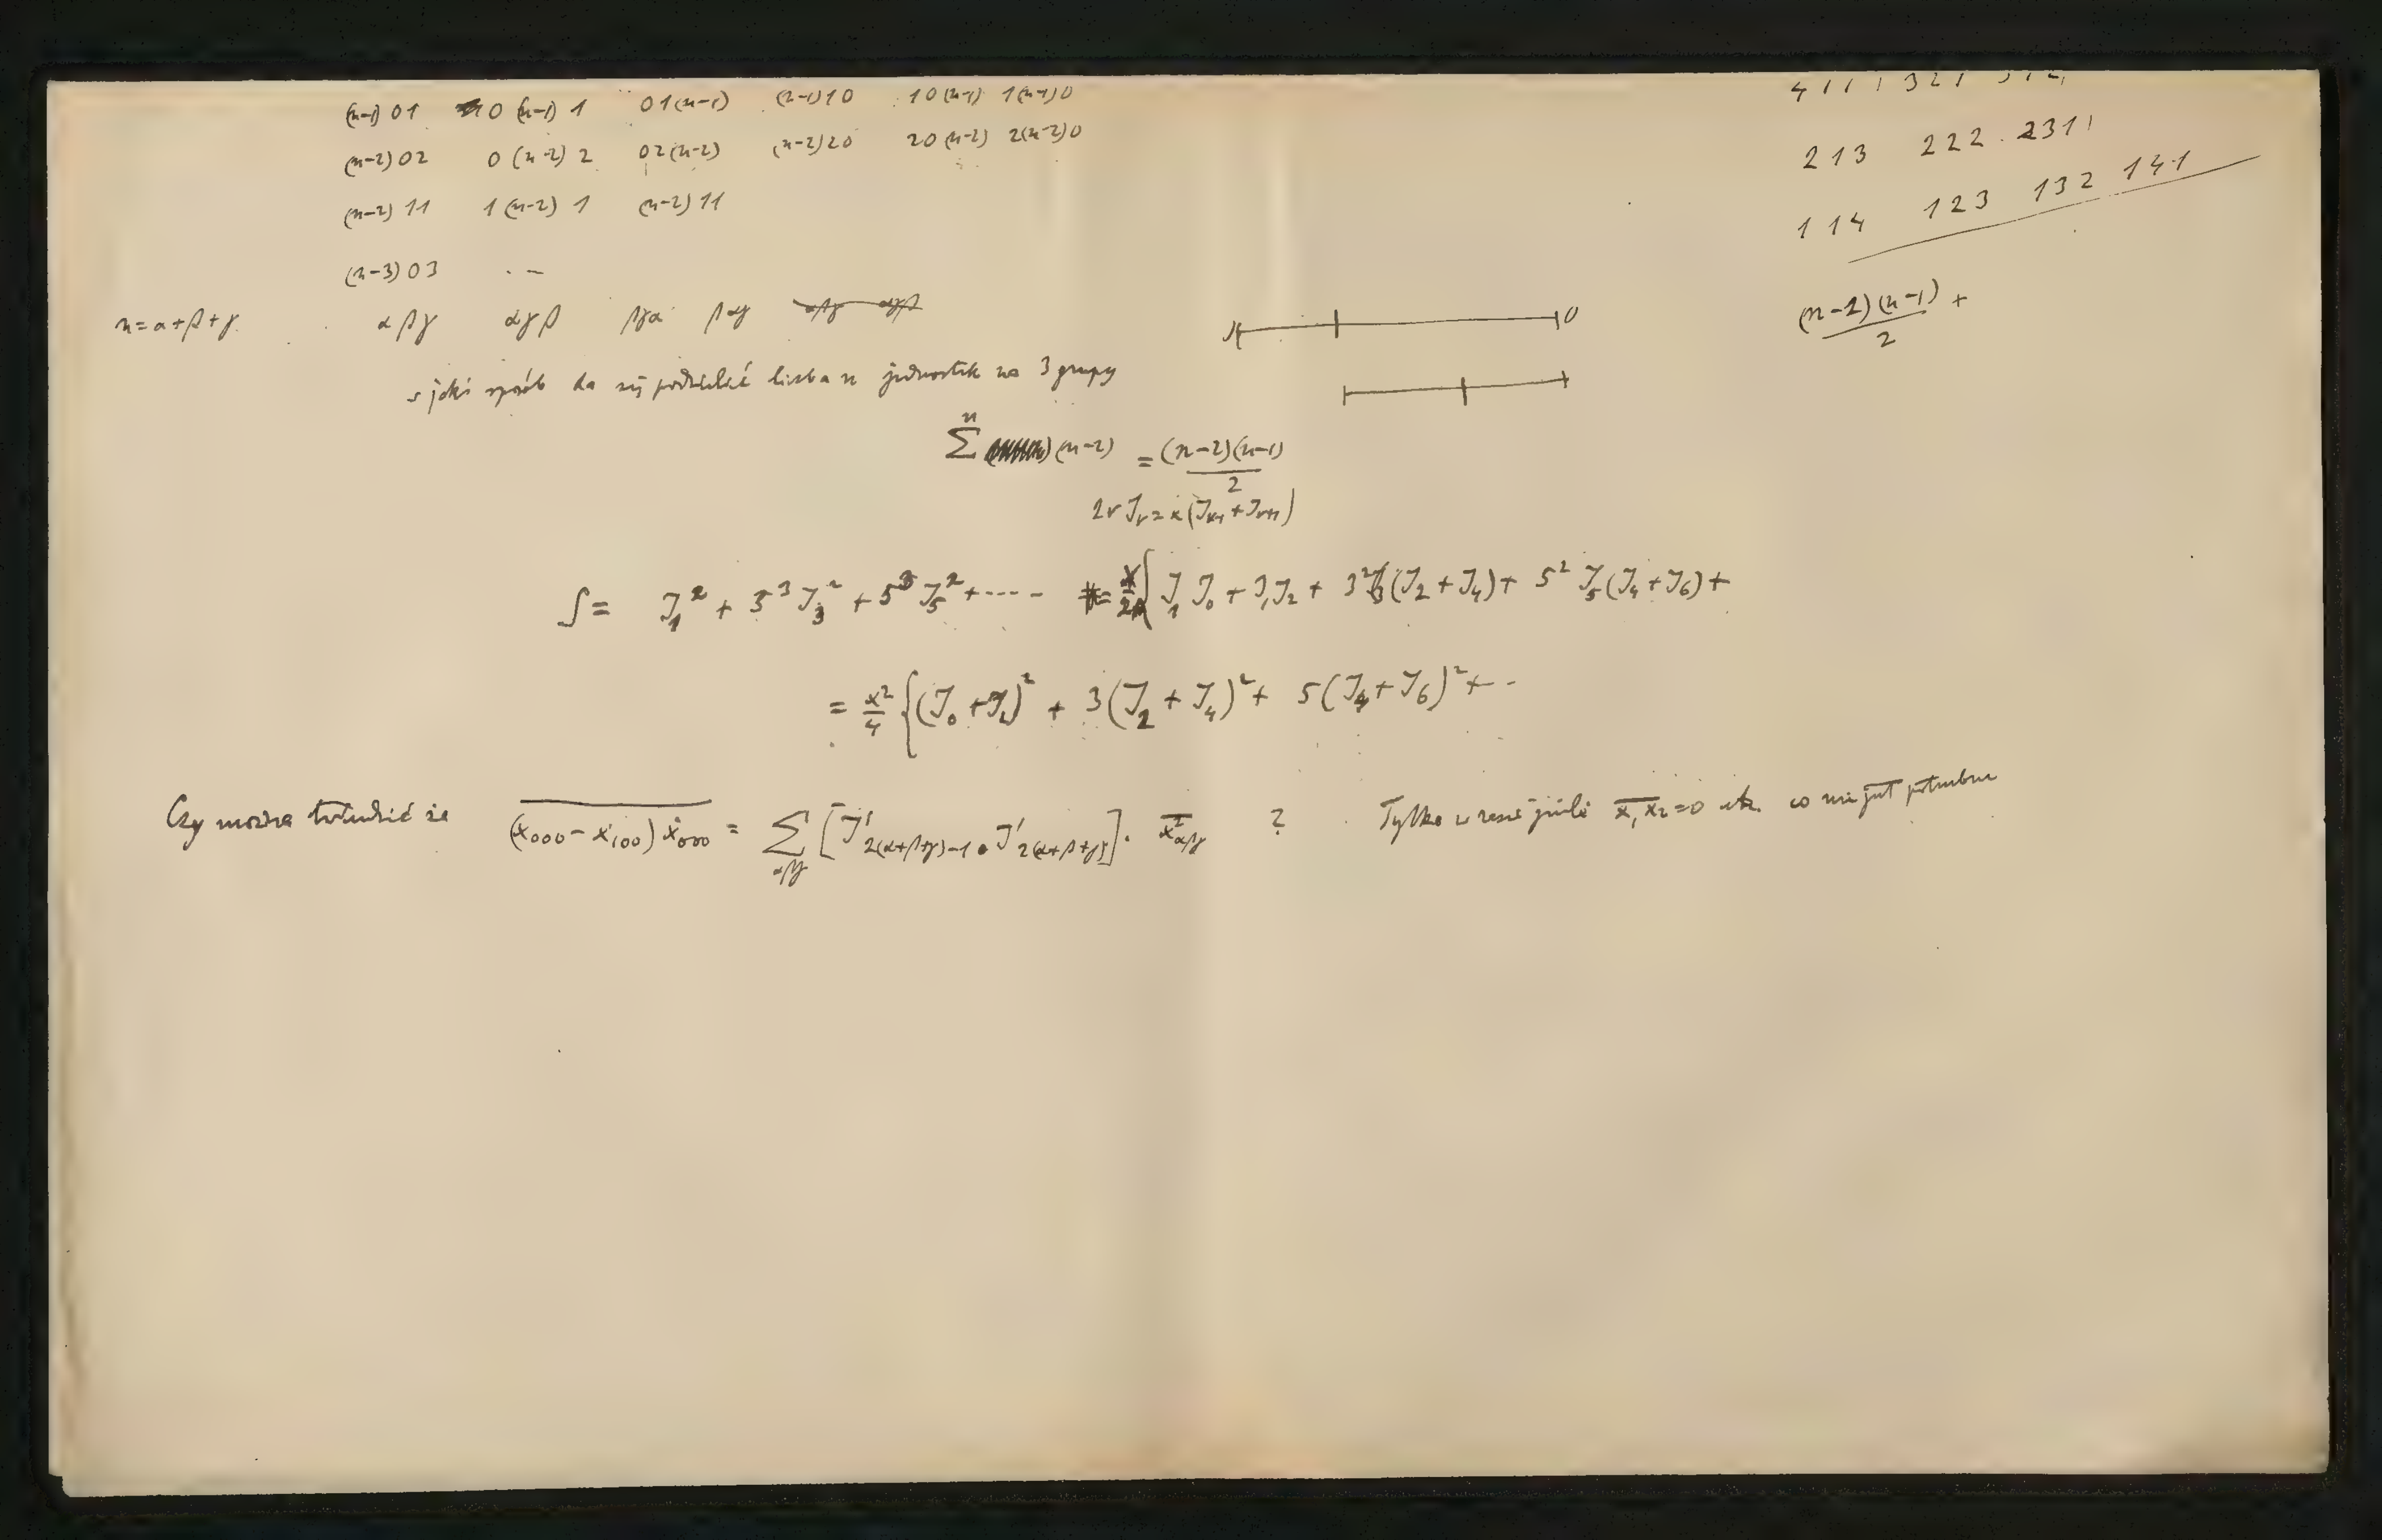 (n-1) 01 0 (n-1) 1 01(n-1) (n-1)10 10(n-1) 1(n-1)0
(n-2) 02 0 (n-2) 2 02(n-2) (n-2)20 20(n-2) 2(n-2)0
(n-2) 11 1(n-2) 1 (n-2) 11
(n-3) 03 . —
n=α+β+γ αβγ αγβ βγα βαγ αβγ αγβ
w jaki sposób da się podzielić liczba n jednostek na 3 grupy
4 1 1 1 3 2 1
2 1 3 2 2 2 2 3 1
1 1 4 1 2 3 1 3 2 1 4 1
(n-2)(n-1)/2 +
0
∑ⁿ (n-2) = (n-2)(n-1)/2
2ν J_ν = x (J_{ν-1} + J_{ν+1})
S = J₁² + 3³ J₃² + 5³ J₅² + ---- = x/2 { J₁ J₀ + J₁J₂ + 3² J₃(J₂ + J₄) + 5² J₅(J₄ + J₆) +
= x²/4 { (J₀ + J₂)² + 3(J₂ + J₄)² + 5(J₄ + J₆)² + ··
Czy można twierdzić że \overline{(x₀₀₀ - x₁₀₀) ẋ₀₀₀} = ∑_{αβγ} [J'_{2(α+β+γ)-1} · J'_{2(α+β+γ)}] · \overline{x²_{αβγ}} ? Tylko w razie jeżeli \overline{x₁x₂} = 0 itd. co nie jest potrzebne